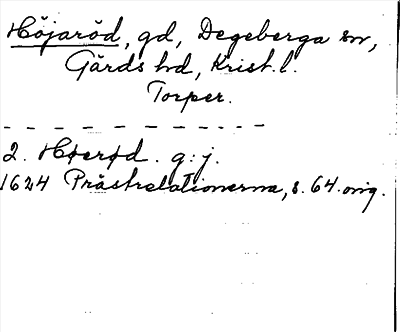 Höjaröd, gd, Degeberga sn,
Gärds hd, Krist. l.
Torper.
2. Høerød. g:j.
1624 Prästrelationerna, s. 64. orig.